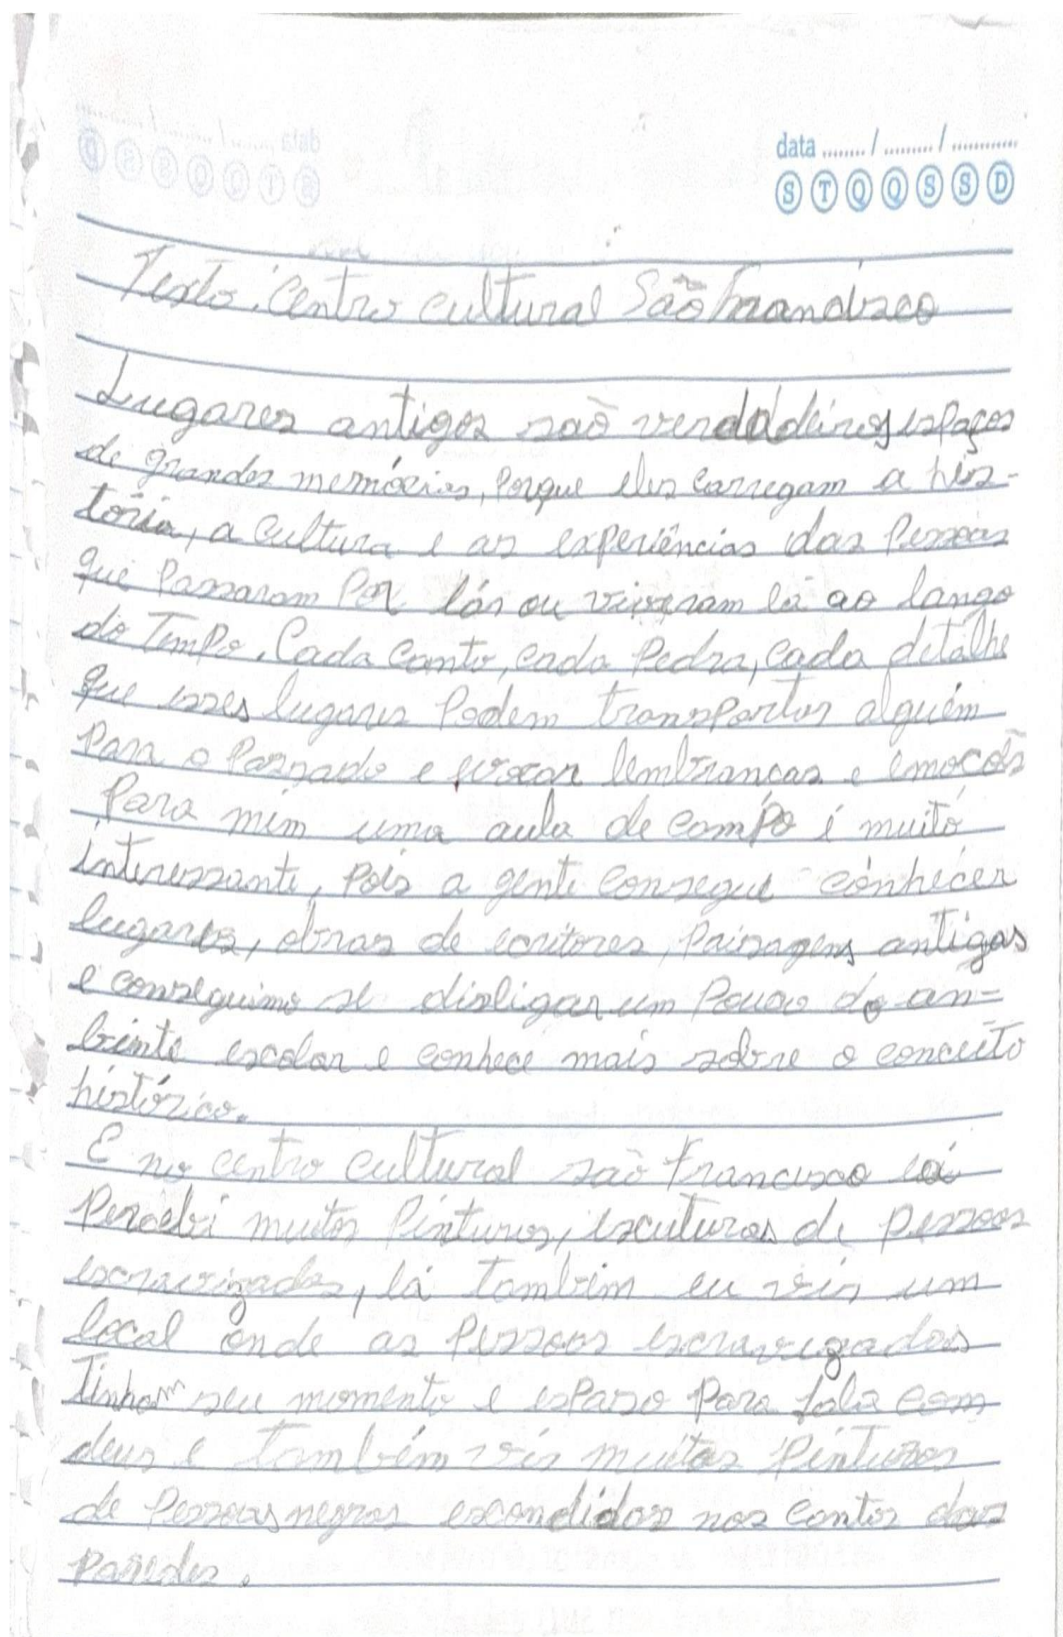 data ...... / ...... / ......
S T Q Q S S D
Texto: Centro cultural São Francisco
Lugares antigos são verdadeiros espaços
de grandes memórias, porque eles carregam a his-
tória, a cultura e as experiências das Pessoas
que Passaram Por lás ou viveram lá ao longo
do Tempo. Cada canto, cada Pedra, cada detalhe
que esses lugares Podem transportar alguém
Para o Passado e evocar lembrancas e emocões
Para mim uma aula de campo é muito
interessante, pois a gente consegue conhecer
lugares, obras de escritores, Paisagens antigas
e conseguimo se disligar um Pouco do an-
biente escolar e conhece mais sobre o conceito
histórico.
E no centro cultural são Francisco lá
Percebi muitas Pinturas, esculturas de pessoas
escravizadas, lá também eu vis um
local onde as Pessoas escravizadas
Tinham seu momento e espaso para fala com
deus e também vis muitas Pinturas
de Pessoas negras escondidas nos cantos das
paredes.